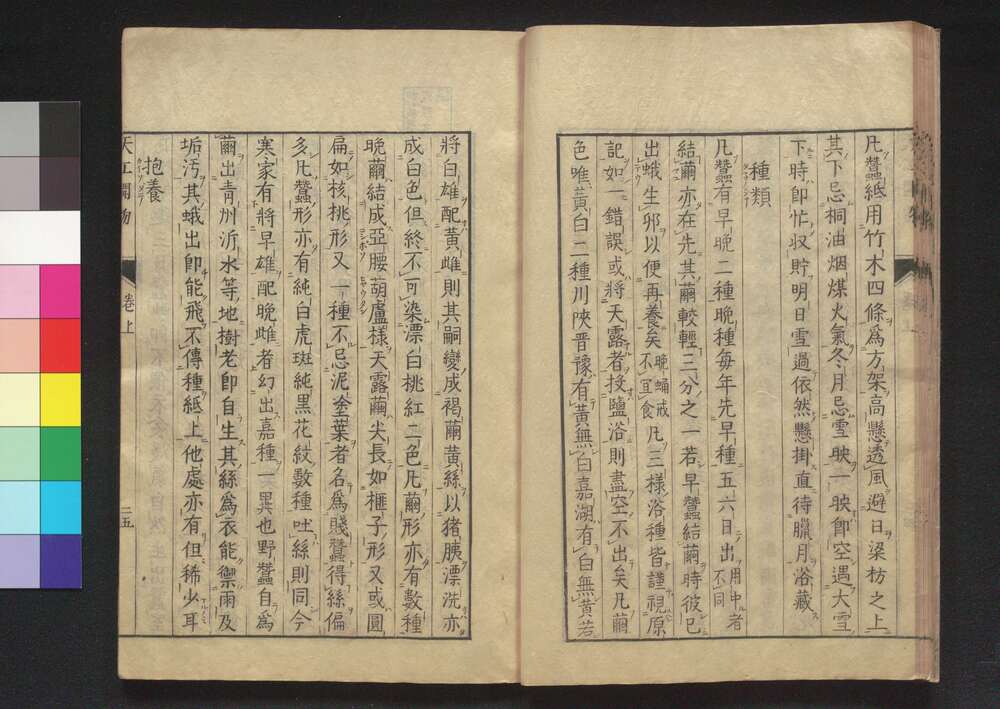 凡蠶紙用竹木四條爲方架高懸透風避日梁枋之上
其下忌桐油烟煤火氣冬月忌雪映一映卽空遇大雪
下時卽忙収貯明日雪過依然懸掛直待臘月浴藏
種類
凡蠶有早晚二種晚種每年先早種五六日出用中者不同
結繭亦在先其繭較輕三分之一若早蠶結繭時彼已
出蛾生卵以便再養矣晚蛹戒不宜食凡三樣浴種皆謹視原
記如一錯誤或將天露者投鹽浴則盡空不出矣凡繭
色唯黃白二種川陝晋豫有黃無白嘉湖有白無黃若
將白雄配黃雌則其嗣變成褐繭黃絲以猪胰漂洗亦
成白色但終不可染漂白桃紅二色凡繭形亦有數種
晚繭結成亞腰葫蘆樣天露繭尖長如榧子形又或圓
扁如核桃形又一種不忌泥塗葉者名爲賤蠶得絲偏
多凡蠶形亦有純白虎斑純黑花紋數種吐絲則同今
寒家有將早雄配晚雌者幻出嘉種一異也野蠶自爲
繭出靑州沂水等地樹老卽自生其絲爲衣能禦雨及
垢汚其蛾出卽能飛不傳種紙上他處亦有但稀少耳
抱養
天工開物
卷上
二五